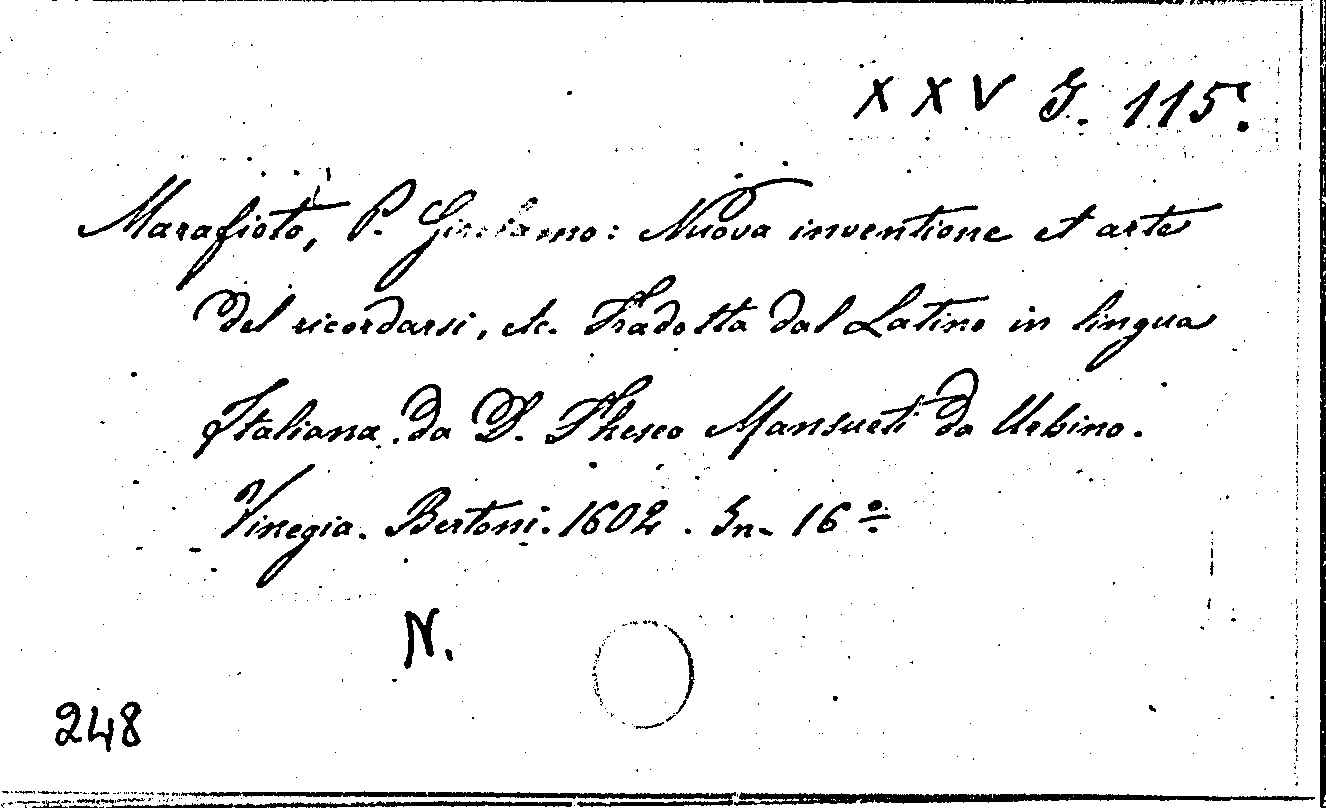 XXV G. 115.
Marafioto, P. Girolamo: Nuova inventione et arte
del ricordarsi, etc. Tradotta dal Latino in lingua
Italiana da D. Theseo Mansueti da Urbino.
Vinegia. Bertoni. 1602. In-16º
N.
248